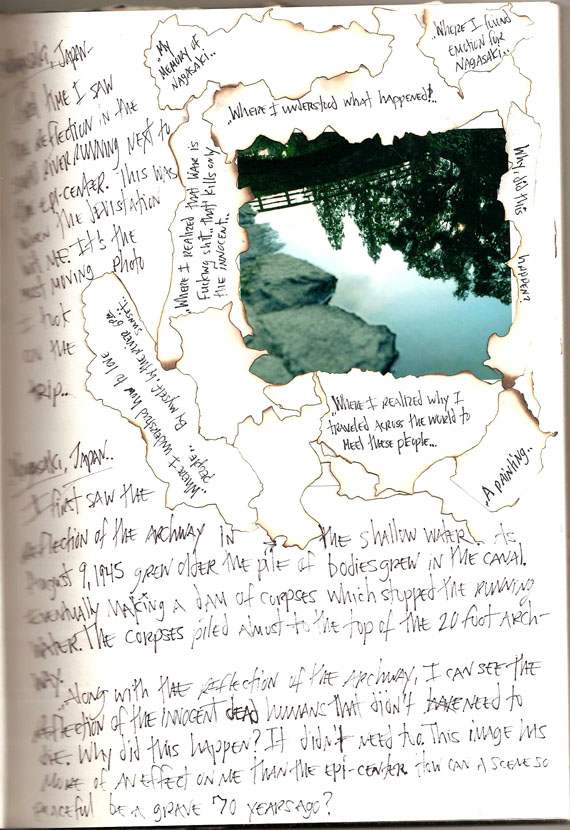 Nagasaki, Japan-
time I saw
the reflection in the
small river running next to
the epi-center. This was
when the devistation
hit me. It's the
most moving photo
I took
on the
trip..
"My
memory of
Nagasaki..
"Where I found
emotion for
Nagasaki..
"Where I understood what happened!..
"Where I realized that war is
fucking shit.. that kills only
the innocent..
Why did this happen?
"Where I understood how to love
people.. By myself by the river 6pm
sunset..
"Where I realized why I
traveled across the world to
meet these people...
"A painting..
Nagasaki, Japan..
I first saw the
reflection of the archway in the shallow water. As
August 9, 1945 grew older the pile of bodies grew in the canal.
Eventually making a dam of corpses which stopped the running
water. The corpses piled almost to the top of the 20 foot arch-
way.
"Along with the reflection of the archway, I can see the
reflection of the innocent dead humans that didn't have need to
die. Why did this happen? It didn't need to. This image has
more of an effect on me than the epi-center. How can a scene so
peaceful be a grave 70 years ago?